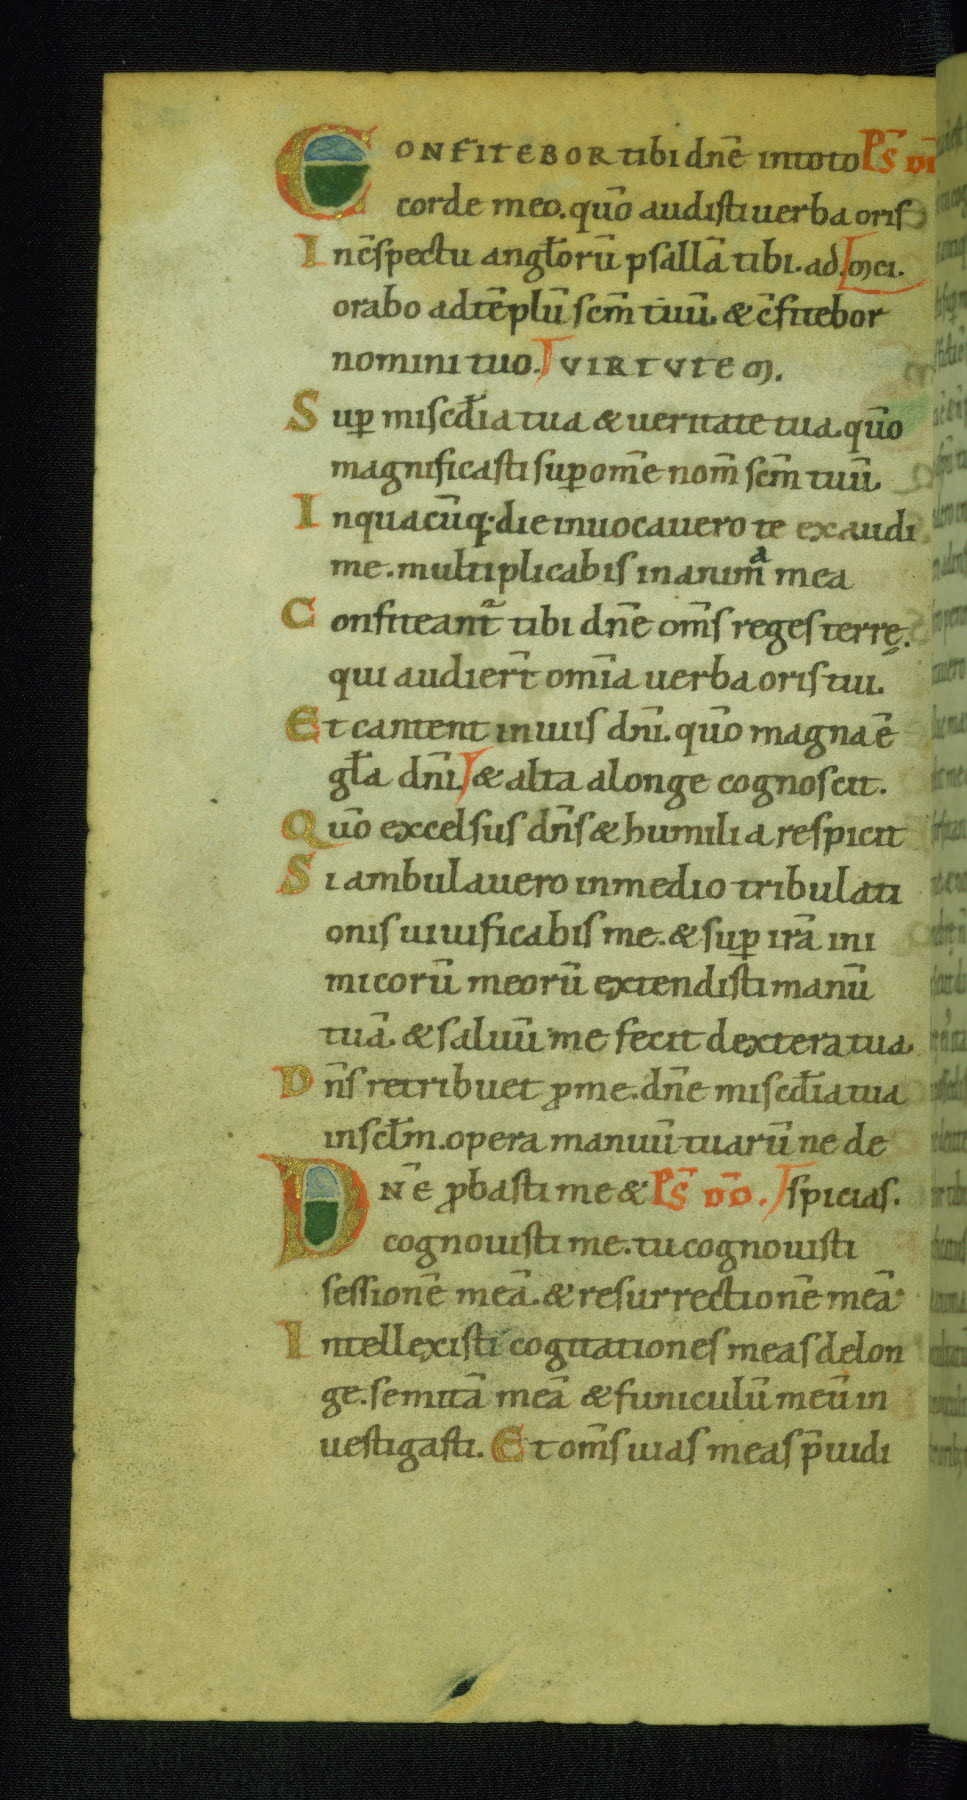 CONFITEBOR tibi dn̄e in toto Ps̄ DĪ
corde meo. qūo audisti uerba oris
In c̄spectu angłorū psallā tibi. ad mei.
orabo ad tēplū scm̄ tuū. & c̄fitebor
nomini tuo. VIRTVTEM.
Suꝑ misc̄dia tua & ueritate tua. qūo
magnificasti suꝑ om̄e nom̄ scm̄ tuū.
In quacūq; die inuocauero te exaudi
me. multiplicabis in anim̄a mea
Confiteant̄ tibi dn̄e om̄s reges terrę.
qui audier̄t om̄ia uerba oris tui.
Et cantent in uiis dn̄i. qūo magna ē
gła dn̄i. & alta a longe cognoscit.
Qūo excelsus dn̄s & humilia respicit
Si ambulauero in medio tribulati
onis uiuificabis me. & suꝑ irā ini
micorū meorū extendisti manū
tuā. & saluū me fecit dextera tua.
Dn̄s retribuet ꝓ me. dn̄e misc̄dia tua
in scłm. opera manuū tuarū ne de
DN̄E ꝓbasti me & Ps̄ DD̄. spicias.
cognouisti me. tu cognouisti
sessionē meā. & resurrectionē meā
Intellexisti cogitationes meas de lon
ge. semitā meā & funiculū meū in
uestigasti. Et om̄s uias meas p̄uidi